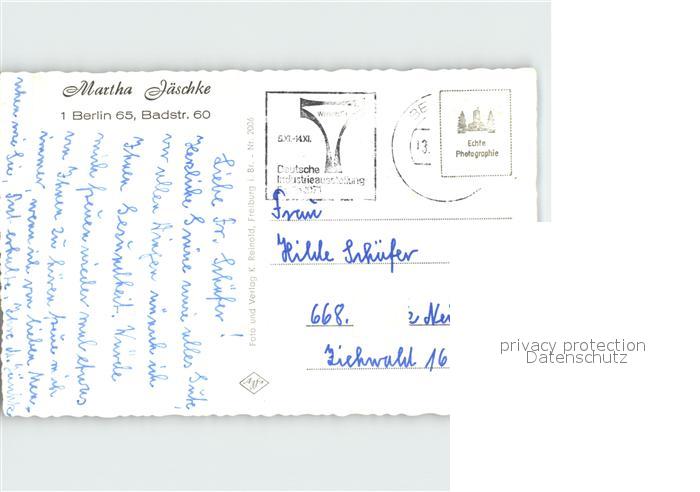 Martha Jäschke
1 Berlin 65, Badstr. 60
Liebe Fr. Schäfer!
Herzliche Grüße und alles Gute,
vor allen Dingen wünsch ich
Ihnen Gesundheit. Würde
mich freuen wieder mal etwas
von Ihnen zu hören freue mich
immer, wenn ich von lieben Men-
Foto und Verlag K. Reinold, Freiburg i. Br. - Nr. 2026
5.XI.-14.XI.
Deutsche
Industrieausstellung
BE
13.
Echte
Photographie
Frau
Hilde Schäfer
668.
Nei
Ziehwald 16
Agfa
privacy protection
Datenschutz